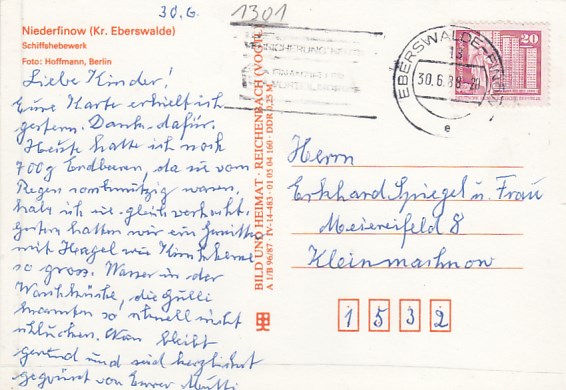 30.6.
1301
Niederfinow (Kr. Eberswalde)
Schiffshebewerk
Foto: Hoffmann, Berlin
Liebe Kinder!
Eure Karte erhielt ich
gestern. Dank dafür.
Heute hatte ich noch
700g Erdbeeren, da sie vom
Regen schmutzig waren,
habe ich sie gleich
gestern hatten wir ein Gewitter
mit Hagel wie Kirschkerne
so gross. Wasser in der
Waschküche, die Gulli
konnten so schnell nicht
schlucken. Nun bleibt
gesund und seid herzlichst
gegrüsst von Eurer Mutti
BILD UND HEIMAT · REICHENBACH (VOGTL
A 1/B 96/87 · IV-14-483 · 01 05 04 160 · DDR 0,25 M
EBERSWALDE-FINOW
30.6.88
e
20
Herrn
Erkhard Spiegel u. Frau
Meiereifeld 8
Kleinmachnow
1532